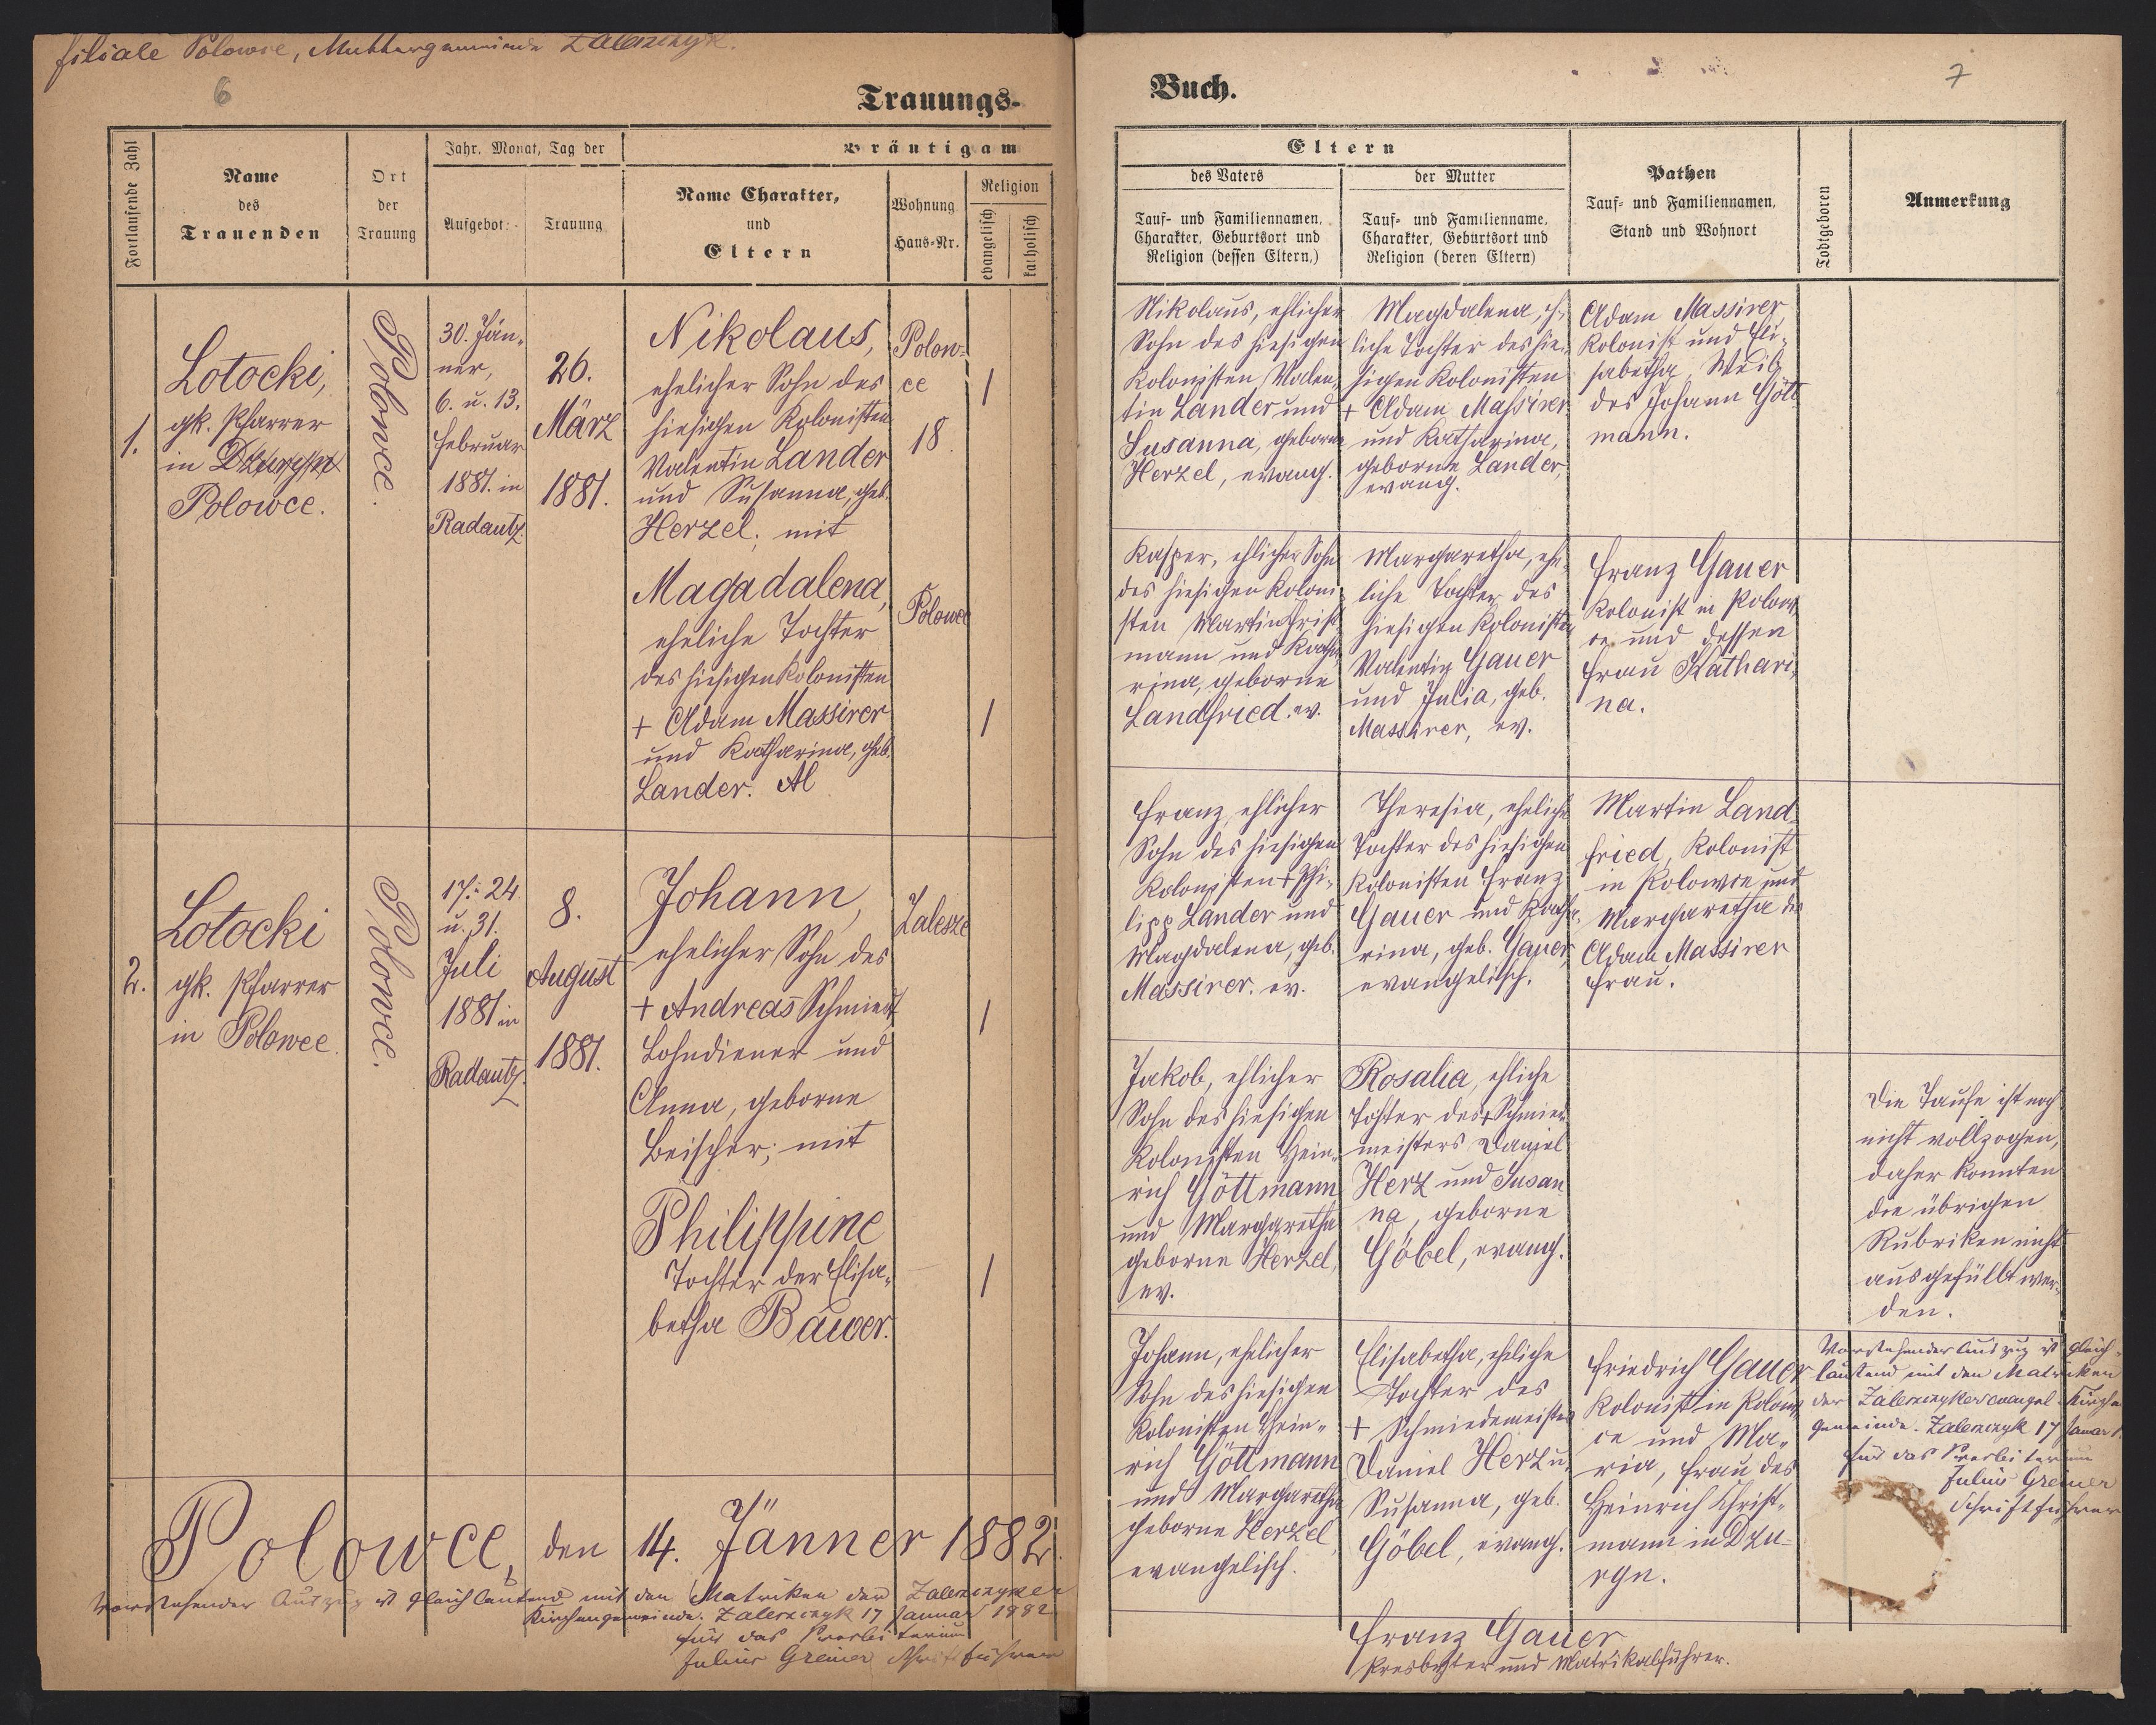 filiale Polowce, Muttergemeinde Zaleszczyk.
6
Trauungs-
Fortlaufende Zahl
Name
des
Trauenden
Ort
der
Trauung
Jahr, Monat, Tag der
Aufgebot
Trauung
Bräutigam
Name Charakter,
und
Eltern
Wohnung
Haus-Nr.
Religion
evangelisch
katholisch
1.
Lotocki,
gk. Pfarrer
in
Polowce.
Polowce.
30. Jän-
ner,
6. u. 13.
Februar
1881. in
Radautz.
26.
März
1881.
Nikolaus,
ehelicher Sohn des
hiesigen Kolonisten
Valentin Lander
und Susanna, geb.
Herzel; mit
Polow-
ce
18
Magadalena,
eheliche Tochter
des hiesigen Kolonisten
+ Adam Massirer
und Katharina, geb.
Lander.
Polowce
2.
Lotocki
gk. Pfarrer
in Polowce.
Polowce.
17. 24.
u. 31.
Juli
1881 in
Radautz.
8.
August
1881.
Johann,
ehelicher Sohn des
+ Andreas Schmiedt
Lohndiener und
Anna, geborne
Beischer; mit
Zalesze
Philippine
Tochter der Elisa-
betha Bauer.
Polowce, den 14. Jänner 1882.
Vorstehender Auszug ist gleichlautend mit den Matriken der Zaleszczyker
Kirchengemeinde. Zaleszczyk 17 Januar 1882
für das Presbiterium
Julius Greiner Schriftführer
Buch.
7
Eltern
des Vaters
Tauf- und Familiennamen,
Charakter, Geburtsort und
Religion (dessen Eltern,)
der Mutter
Tauf- und Familienname,
Charakter, Geburtsort und
Religion (deren Eltern)
Pathen
Tauf- und Familiennamen,
Stand und Wohnort
Todtgeboren
Anmerkung
Nikolaus, ehlicher
Sohn des hiesigen
Kolonisten Valen-
tin Lander und
Susanna, geborne
Herzel, evang.
Magdalena, eh-
liche Tochter des hie-
sigen Kolonisten
+ Adam Massirer
und Katharina,
geborne Lander,
evang.
Adam Massirer,
Kolonist und Eli-
sabetha, Weib
des Johann Gött-
mann.
Kasper, ehlicher Sohn
des hiesigen Koloni-
sten Martin Christ-
mann und Katha-
rina, geborne
Landfried. ev.
Margaretha, ehe-
liche Tochter des
hiesigen Kolonisten
Valentin Gauer
und Julia, geb.
Massirer, ev.
Franz Gauer
Kolonist in Polow-
ce und dessen
Frau Kathari-
na.
Franz, ehlicher
Sohn des hiesigen
Kolonisten + Phi-
lipp Lander und
Magdalena, geb.
Massirer. ev.
Theresia, eheliche
Tochter des hiesigen
Kolonisten Franz
Gauer und Katha-
rina, geb. Gauer,
evangelisch.
Martin Land-
fried, Kolonist
in Polowce und
Margaretha des
Adam Massirer
Frau.
Jakob, ehlicher
Sohn des hiesigen
Kolonisten Hein-
rich Göttmann
und Margaretha
geborne Herzel,
ev.
Rosalia, ehliche
Tochter des + Schmied-
meisters Daniel
Herz und Susan-
na, geborne
Göbel, evang.
Die Taufe ist noch
nicht vollzogen,
daher konnten
die übrigen
Rubriken nicht
ausgefüllt wer-
den.
Johann, ehelicher
Sohn des hiesigen
Kolonisten Hein-
rich Göttmann
und Margaretha
geborne Herzel,
evangelisch.
Elisabetha, eheliche
Tochter des
+ Schmiedemeisters
Daniel Herz u.
Susanna, geb.
Göbel, evang.
Friedrich Gauer
Kolonist in Polow-
ce und Ma-
ria, Frau des
Heinrich Christ-
mann in Dzu-
ryn.
Vorstehender Auszug ist gleich-
lautend mit den Matriken
der Zaleszczyker evangel. Kirchen
gemeinde. Zaleszczyk 17 Januar
für das Presbiterium
Julius Greiner
Schriftführer
Franz Gauer
Presbyter und Matrikalführer.